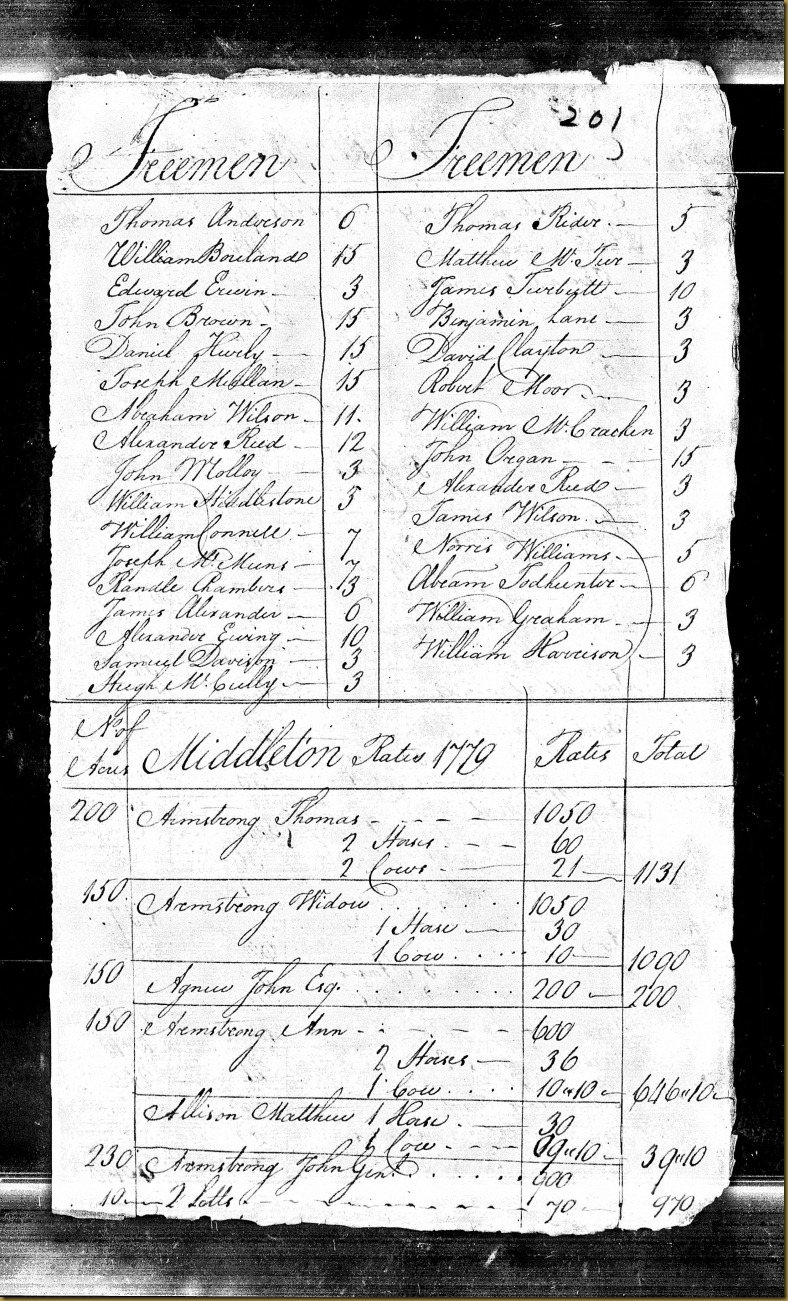 201
Freemen
Thomas Anderson 6
William Bouland 15
Edward Erwin 3
John Brown 15
Daniel Hurly 15
Joseph McCllan 15
Abraham Wilson 11.
Alexander Reed 12
John Molloy 3
William Huddlestone 3
William Connell 7
Joseph Mc.Muns 7
Randle Chambers 13
James Alexander 6
Alexander Ewing 10
Samuel Davison 3
Hugh Mc.Cully 3
Freemen
Thomas Rider 5
Matthew Mc. 3
James Turbytt 10
Benjamin Lane 3
David Clayton 3
Robert Moor 3
William Mc.Crachen 3
John Organ 15
Alexander Reed 3
James Wilson 3
Norris Williams 5
Abram Todhunter 6
William Graham 3
William Harrison 3
No. of Acres Middleton Rates 1779 Rates Total
200 Armstrong Thomas 1050
2 Horses 60
2 Cows 21 1131
150 Armstrong Widow 1050
1 Horse 30
1 Cow 10 1090
150 Agnew John Esq. 200 200
150 Armstrong Ann 600
2 Horses 36
1 Cow 10"10 646"10
Allison Matthew 1 Horse 30
1 Cow 09"10 39"10
230 Armstrong John Genl. 900
10 2 Lotts 70 970